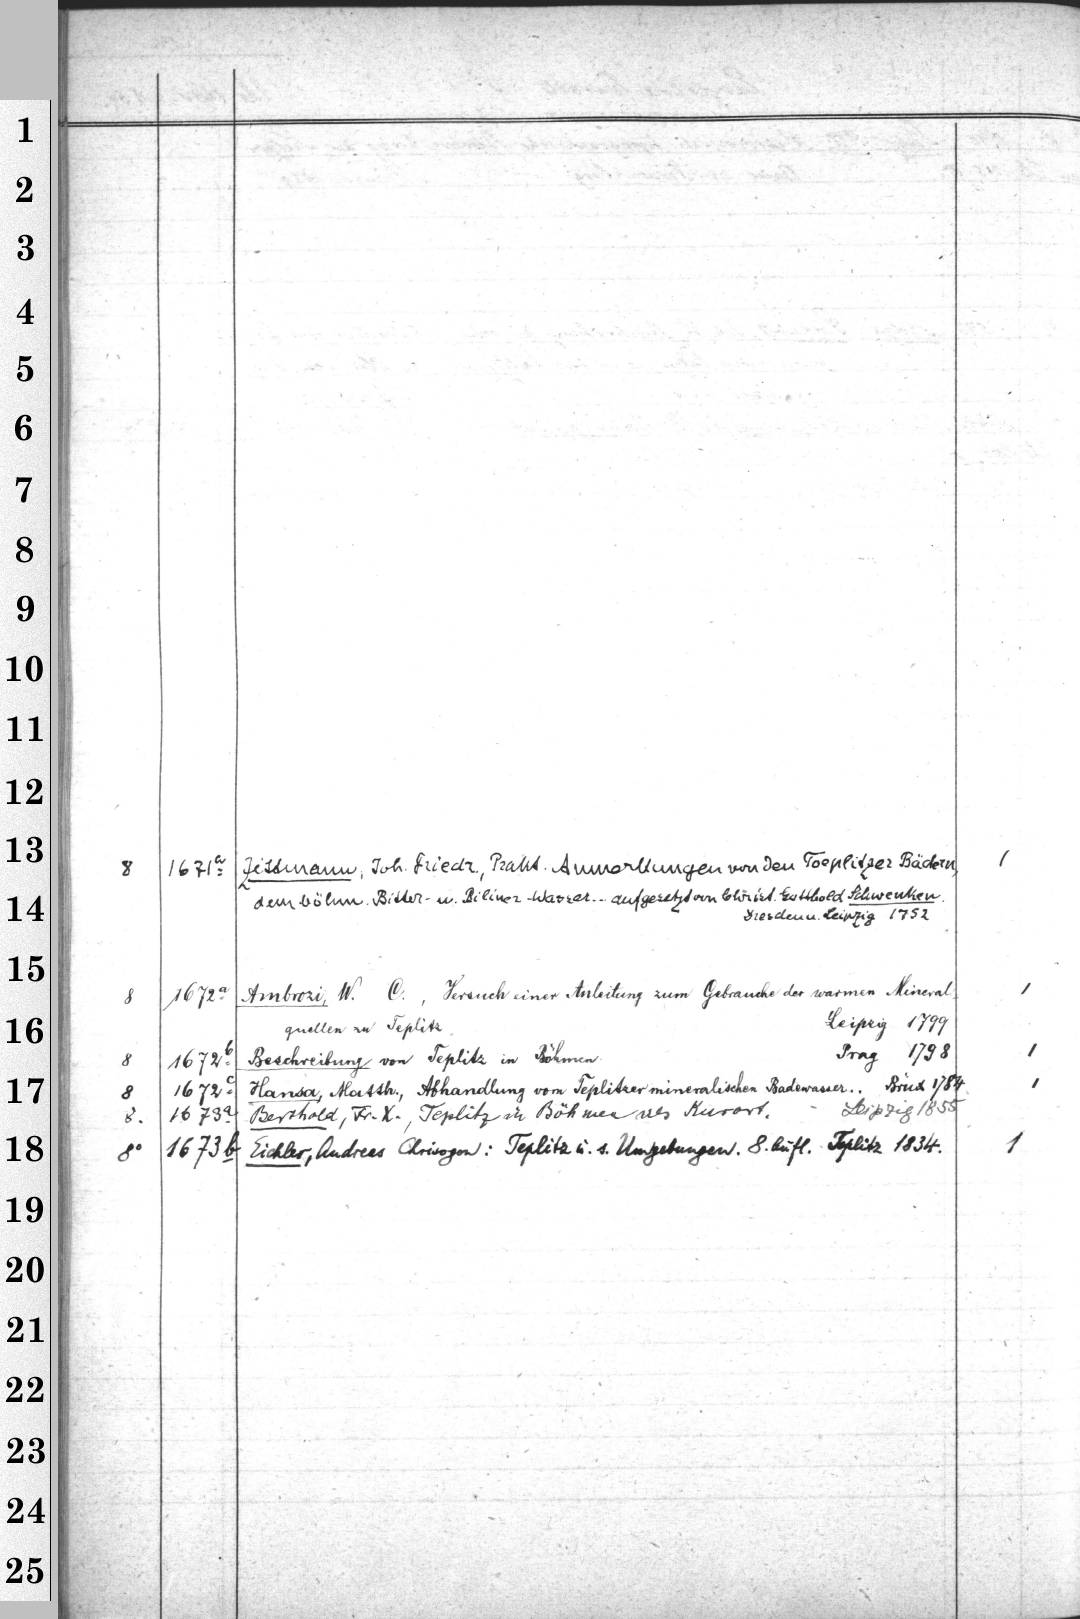 1
2
3
4
5
6
7
8
9
10
11
12
13
14
15
16
17
18
19
20
21
22
23
24
25
8 1671a Zittmann, Joh. Friedr., Prakt. Anmerkungen von den Toeplitzer Bädern, 1
dem böhm. Bitter- u. Biliner-Wasser... aufgesetzt von Christ. Gotthold Schwenken.
Dresden u. Leipzig 1752
8 1672a Ambrozi, W. C., Versuch einer Anleitung zum Gebrauche der warmen Mineral- 1
quellen zu Teplitz. Leipzig 1799
8 1672b Beschreibung von Teplitz in Böhmen. Prag 1798 1
8 1672c Hansa, Matth., Abhandlung vom Teplitzer mineralischen Badewasser.. Brüx 1784 1
8. 1673a Berthold, Fr. X., Teplitz in Böhmen als Kurort. - Leipzig 1855
8° 1673b Eichler, Andreas Chrisogon: Teplitz u. s. Umgebungen. 8. Aufl. Teplitz 1834. 1